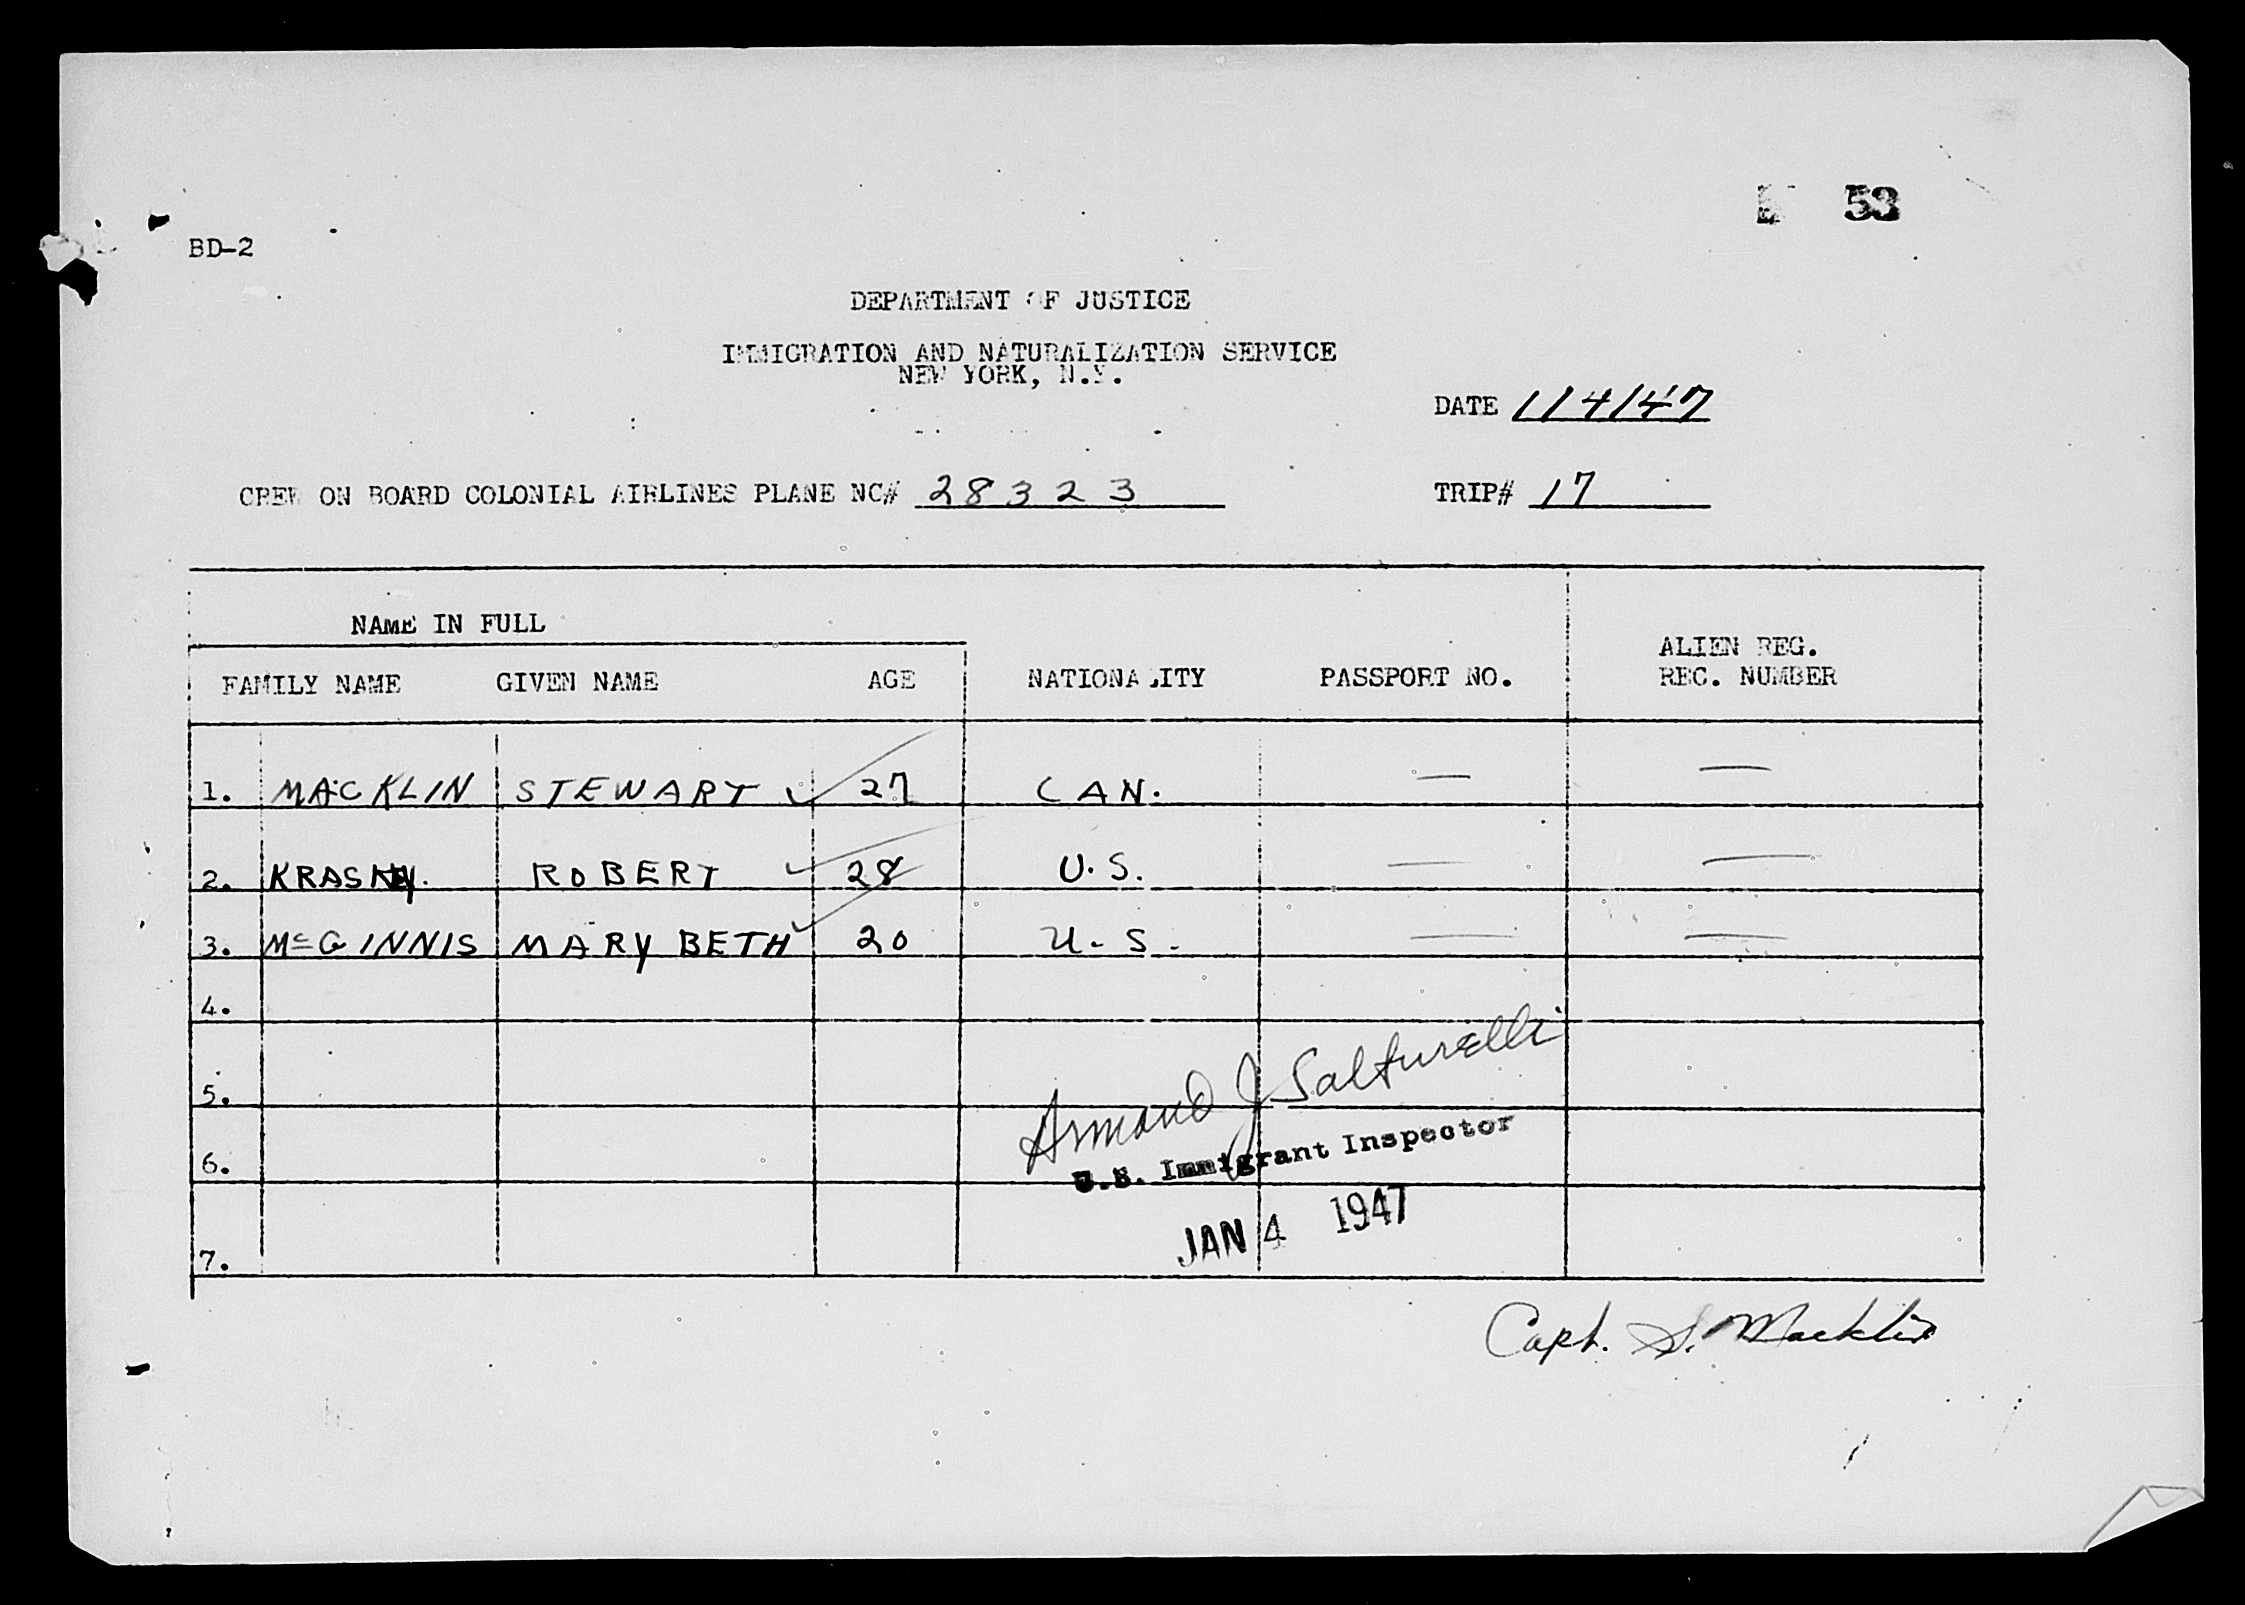 53
BD-2
DEPARTMENT OF JUSTICE
IMMIGRATION AND NATURALIZATION SERVICE
NEW YORK, N.Y.
DATE 1/4/47
CREW ON BOARD COLONIAL AIRLINES PLANE NC# 28323
TRIP# 17
NAME IN FULL
FAMILY NAME GIVEN NAME AGE NATIONALITY PASSPORT NO. ALIEN REG. REC. NUMBER
1. MACKLIN STEWART ✓ 27 CAN. — —
2. ROBERT ✓ 28 U.S. — —
3. McGINNIS MARY BETH ✓ 20 U.S. — —
4.
5.
6.
7.
Armand J Salturelli
U.S. Immigrant Inspector
JAN 4 1947
Capt. S. Macklin